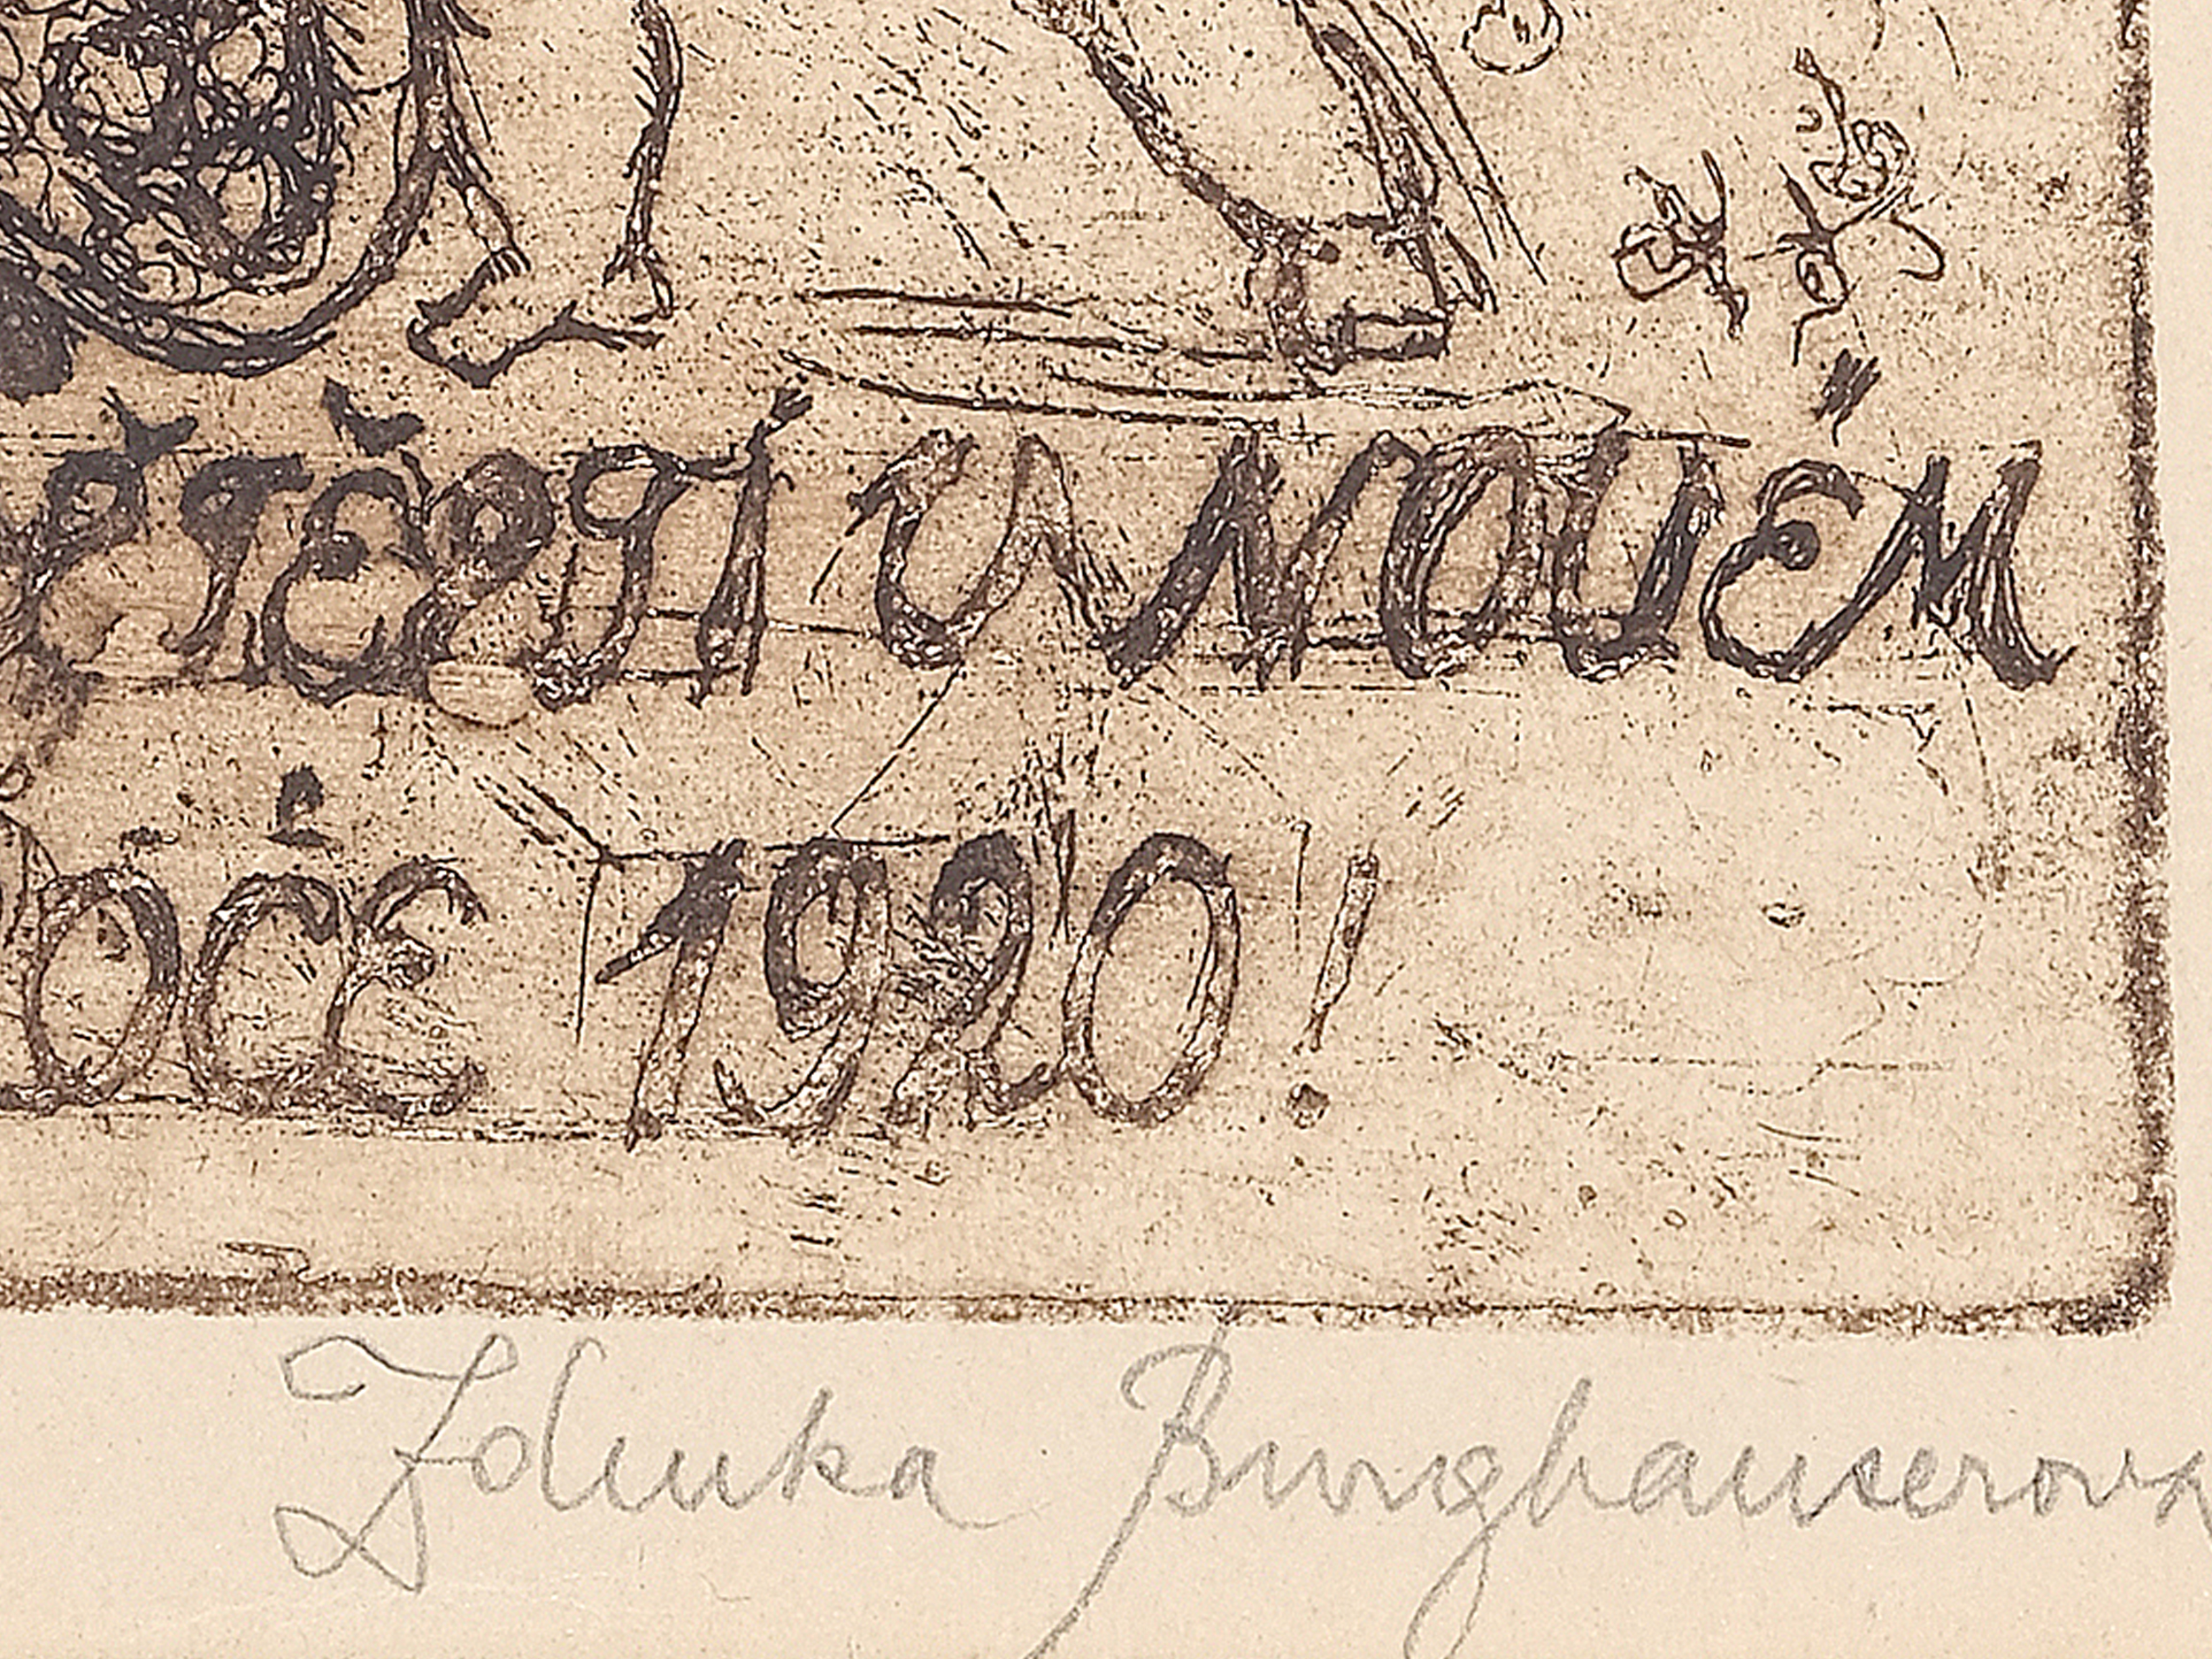 ŠTĚSTÍ V NOVÉM
ROCE 1920!
Zdenka Burghauserova